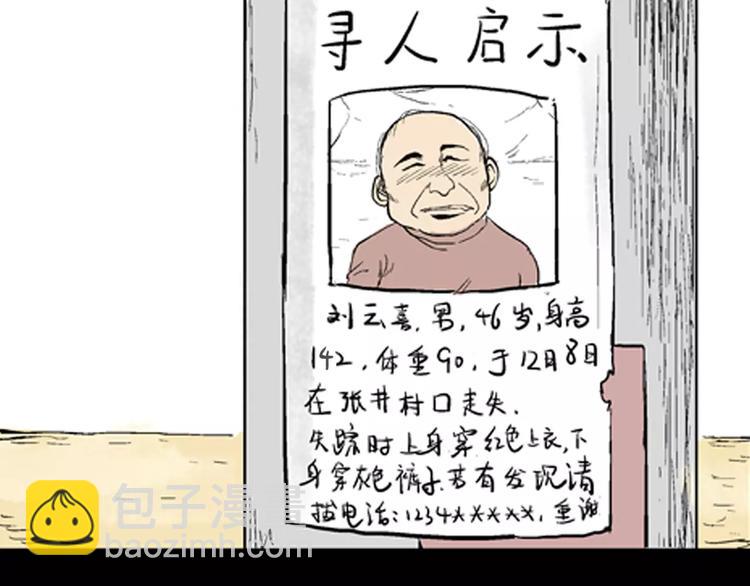 寻人启示
刘云喜,男,46岁,身高
142,体重90,于12月8日
在张井村口走失.
失踪时上身穿红色上衣,下
身穿灰色裤子.若有发现请
拨电话:1234*****,重谢
包子漫畫
baozimh.com